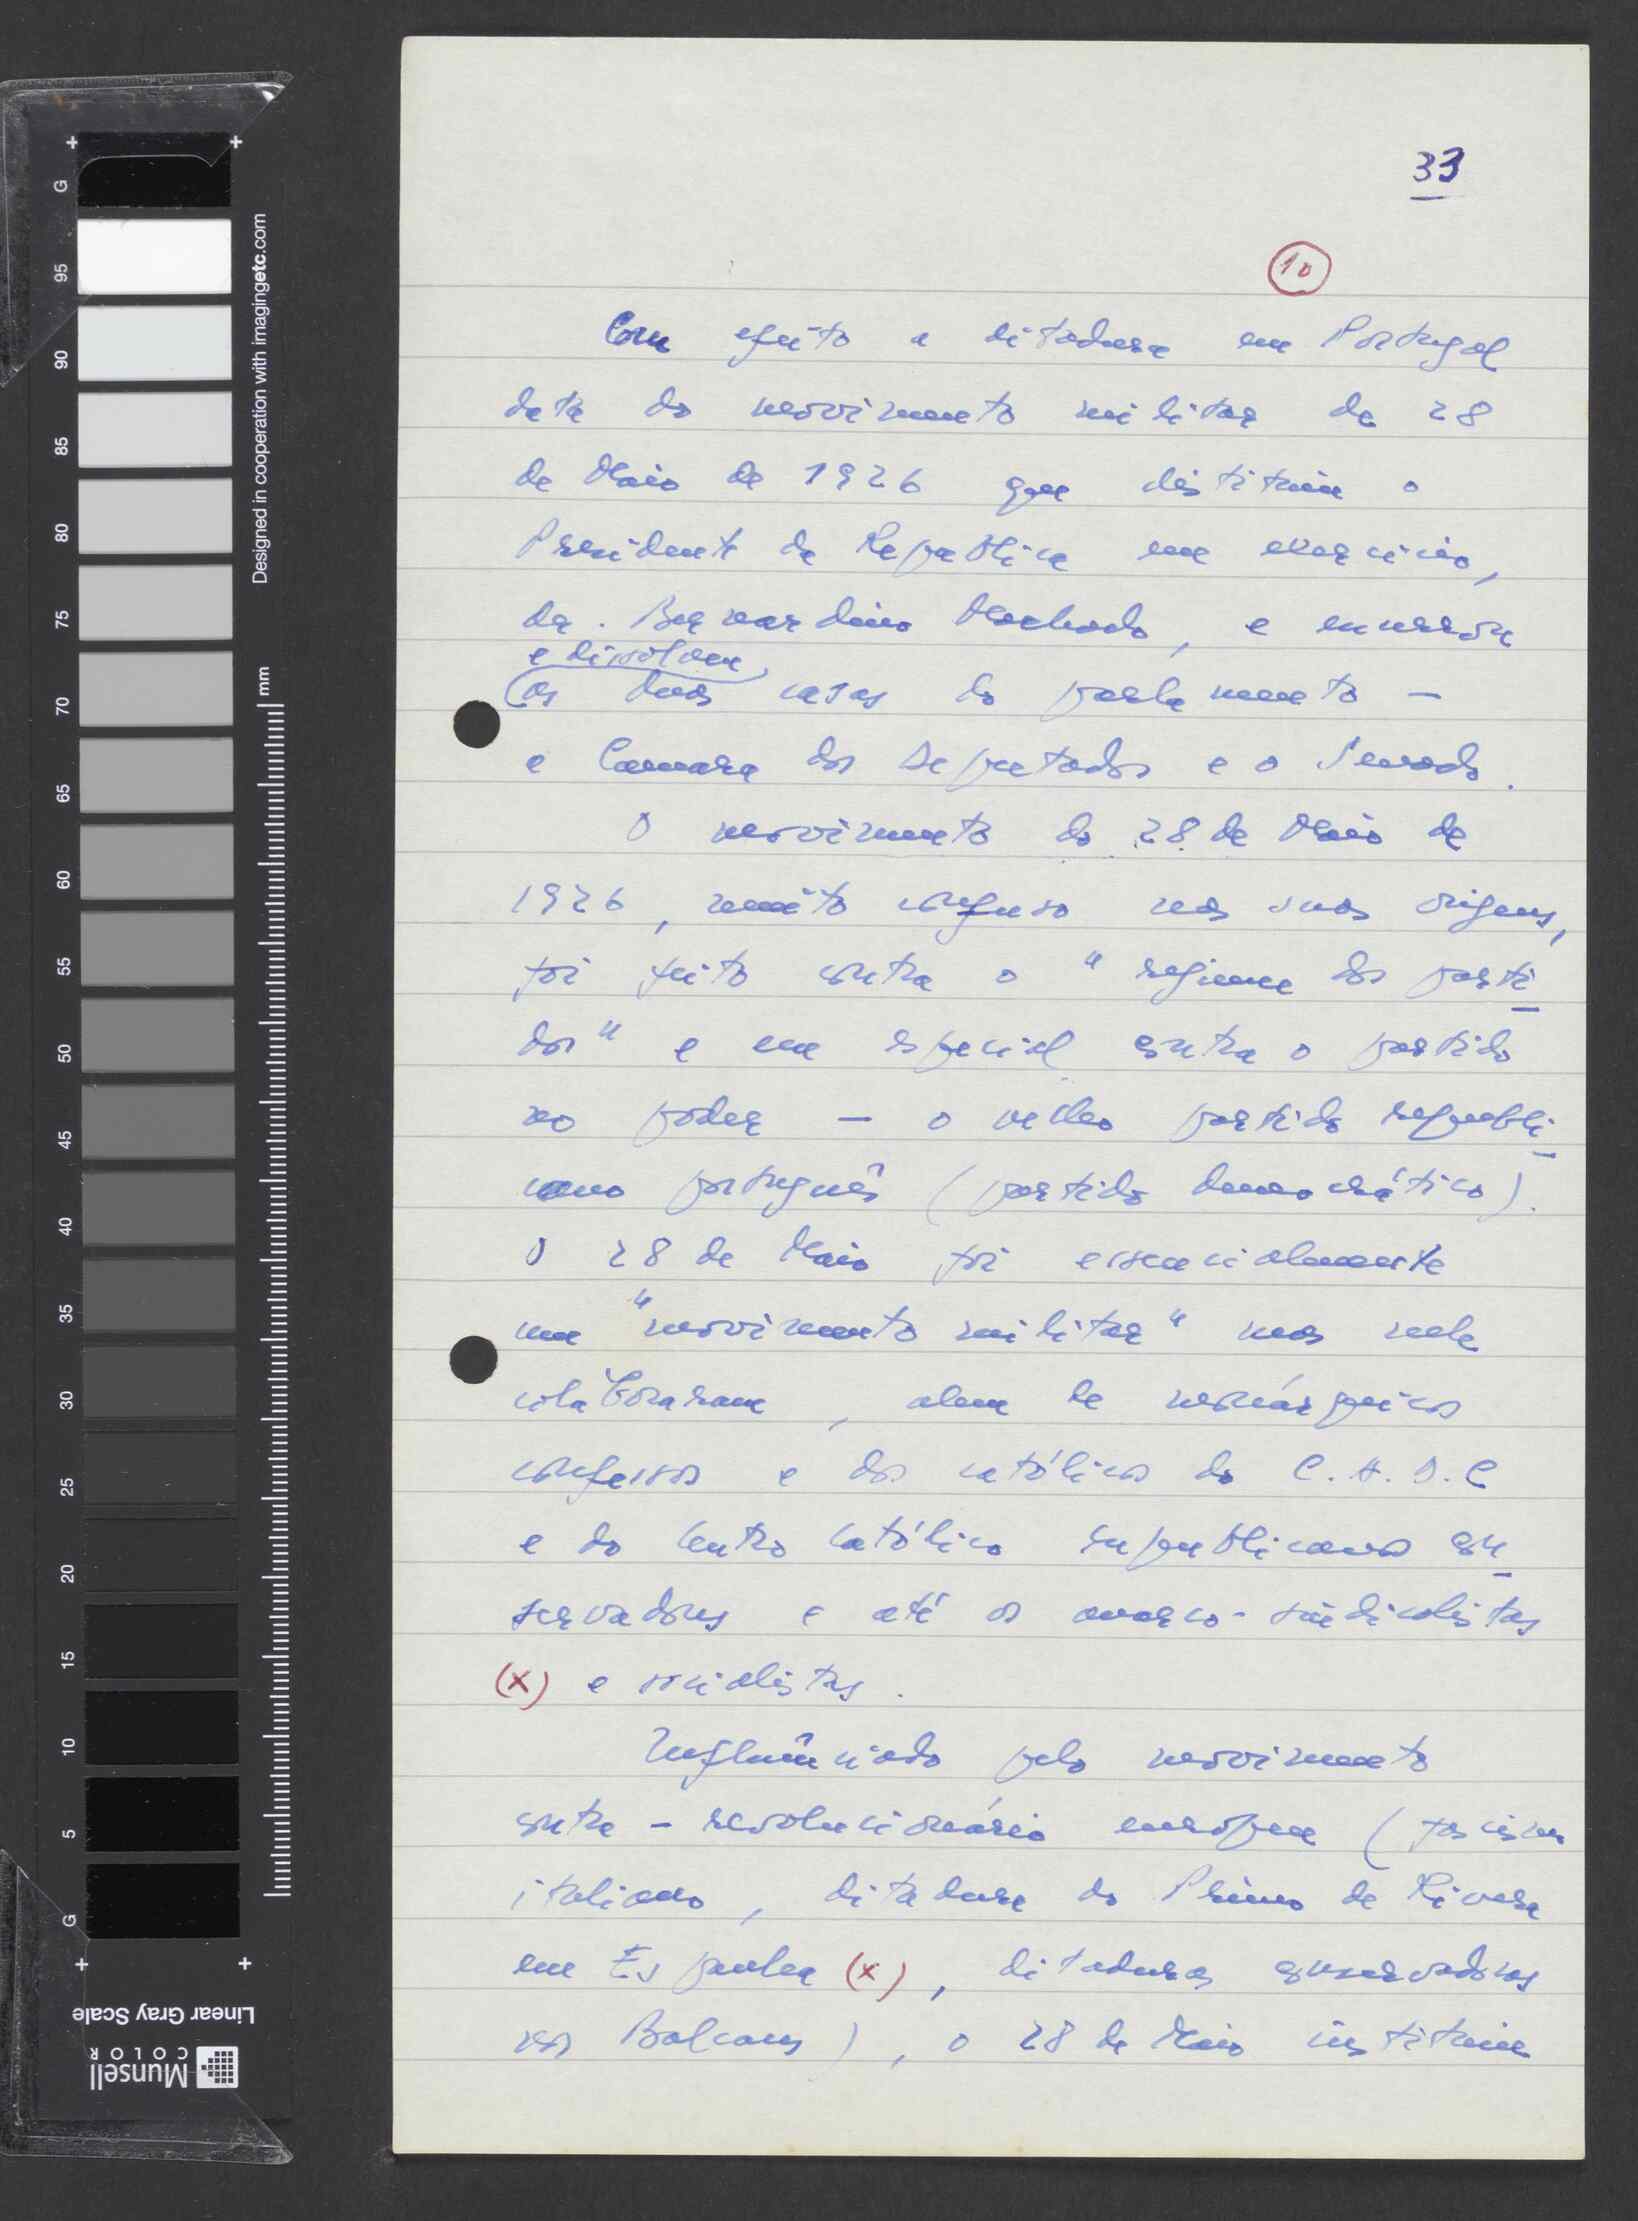 33
10
Com efeito a ditadura em Portugal
data do movimento militar de 28
de Maio de 1926 que destituiu o
Presidente da Republica em exercicio,
dr. Bernardino Machado, e encerrou
e dissolveu
as duas casas do parlamento —
a Camara dos Deputados e o Senado.
O movimento do 28 de Maio de
1926, muito confuso nas suas origens,
foi feito contra o "regime dos parti
dos" e em especial contra o partido
no poder — o velho partido republi
cano português (partido democrático).
O 28 de Maio foi essencialmente
um "movimento militar" mas nele
colaboraram, alem de monárquicos
confessos e dos católicos do C.A.D.C
e do Centro Católico republicanos con
servadores e até os anarco-sindicalistas
(x) e socialistas.
Influênciado pelo movimento
contra-revolucionário europeu (fascismo
italiano, ditadura do Primo de Rivera
em Espanha (x), ditaduras conservadoras
nos Balcans), o 28 de Maio instituiu
G
95
90
85
80
75
70
65
60
55
50
45
40
35
30
25
20
15
10
5
G
Designed in cooperation with imagingetc.com
mm
Linear Gray Scale
Munsell
COLOR